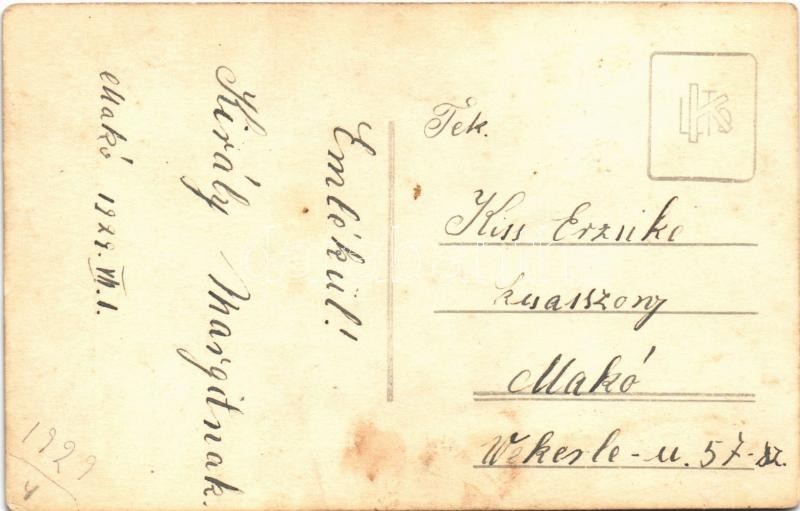 Emlékül!
Király Margitnak.
Makó 1929. VII. 1.
1929
Tek.
Kiss Erzsike
kisasszony
Makó
Wekerle-u. 57-sz.